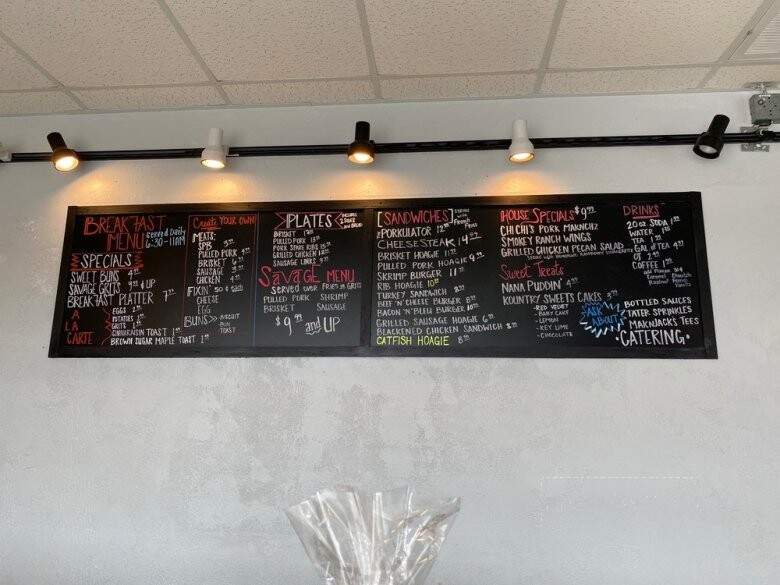 BREAKFAST
MENU served Daily
6:30-11AM
SPECIALS
SWEET BUNS 4
SAVAGE GRITS 9 & UP
BREAKFAST PLATTER 7
A LA CARTE
EGGS 2
POTATOES
GRITS
CINNAMON TOAST 1
BROWN SUGAR MAPLE TOAST 1
CREATE YOUR OWN
MEATS:
SPB
PULLED PORK
BRISKET
SAUSAGE
CHICKEN 4
FIXIN' 50¢ each
CHEESE
EGG
BUNS BISCUIT
BUN
TOAST
PLATES
BRISKET
PULLED PORK
PORK SPARE RIBS
GRILLED CHICKEN
SAUSAGE LINKS
SAVAGE MENU
served over Fries or Grits
PULLED PORK SHRIMP
BRISKET SAUSAGE
$9.99 and UP
SANDWICHES served with French Fries
#PORKULATOR 12
CHEESESTEAK 14
BRISKET HOAGIE 11
PULLED PORK HOAGIE 9
SHRIMP BURGER 11
RIB HOAGIE 10
TURKEY SANDWICH 8
BEEF 'N' CHEESE BURGER 8
BACON 'N' BLEU BURGER 10
GRILLED SAUSAGE HOAGIE 6
BLACKENED CHICKEN SANDWICH 8
CATFISH HOAGIE 8
HOUSE SPECIALS $9.99
CHI CHI'S PORK MAKNCHZ
SMOKEY RANCH WINGS
GRILLED CHICKEN PECAN SALAD
Sweet Treats
NANA PUDDIN' 4
KOUNTRY SWEETS CAKES 3
-RED VELVET
-BABY CAKE
-LEMON
-KEY LIME
-CHOCOLATE
DRINKS
20oz SODA
WATER 1
TEA 1
GAL of TEA 4
OJ 2
COFFEE 1
add Flavor
Caramel French
Hazelnut Vanilla
ASK ABOUT:
BOTTLED SAUCES
TATER SPRINKLES
MAKNJACK'S TEES
CATERING